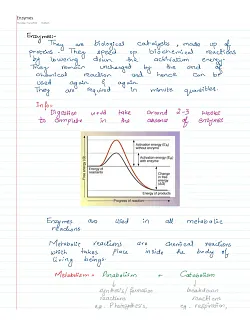 Enzymes
Enzymes:-
They are biological catalysts, made up of
proteins. They speed up biochemical reactions
by lowering down the activation energy.
They remain unchanged by the end of
chemical reaction and hence can be
used again & again.
They are required in minute quantities.
Info:-
Digestion would take around 2-3 weeks
to complete in the absence of enzymes
Activation energy (Ea)
without enzyme
Activation energy (Ea)
with enzyme
Energy of
reactants
Change
in free
energy
Energy of products
Free energy
Progress of reaction
Enzymes are used in all metabolic
reactions
Metabolic reactions are chemical reactions
which takes place inside the body of
living beings.
Metabolism = Anabolism + Catabolism
synthesis/formative
reactions
eg. Photosynthesis
breakdown
reactions
eg. respiration